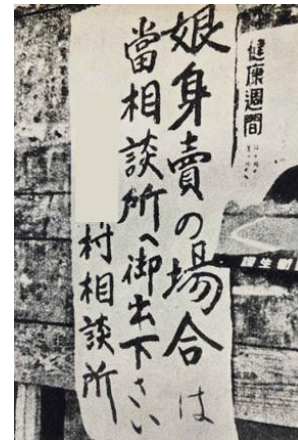 健康週間
娘身賣の場合は
當相談所へ御出下さい
村相談所